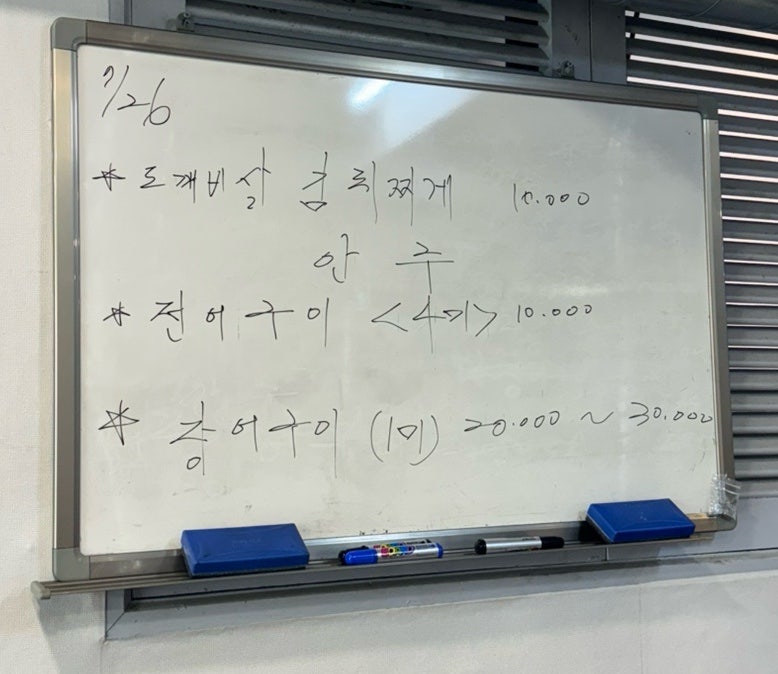 7/26
* 도깨비살 김치찌게 10.000
안주
* 전어구이 <4미> 10.000
* 장어구이 (1미) 20.000 ~ 30.000